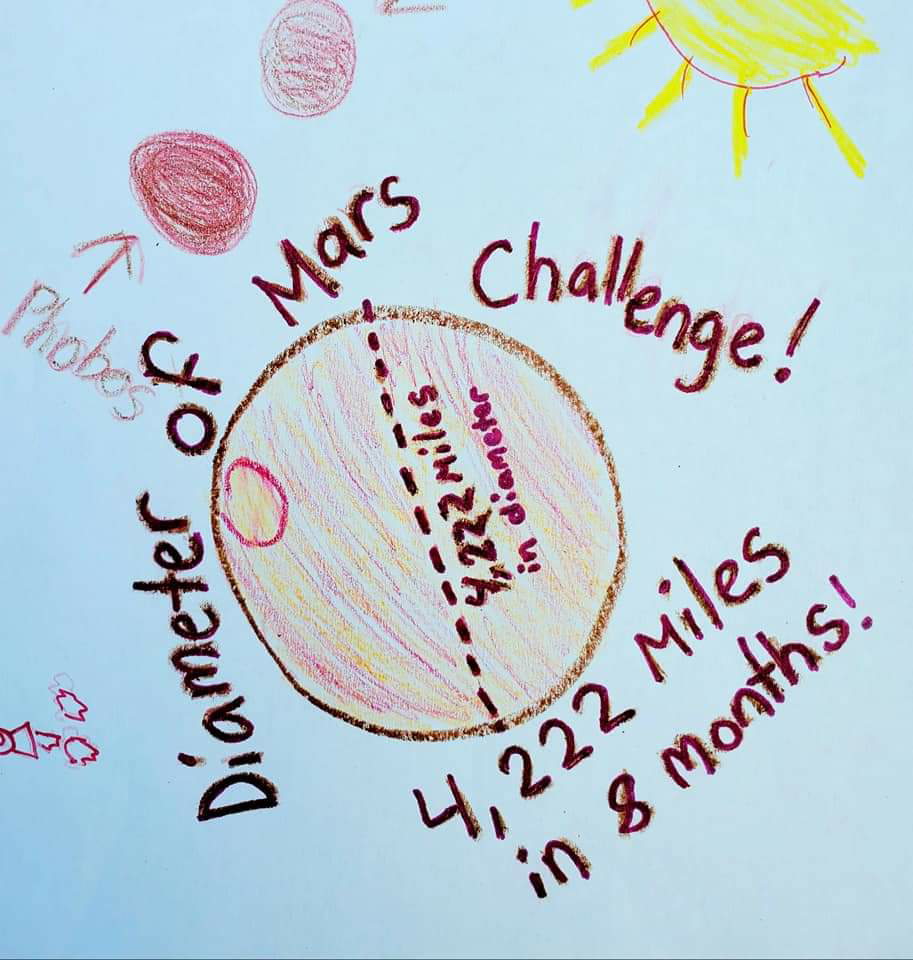 Diameter of Mars Challenge!
Phobos
4,222 Miles
in diameter
4,222 Miles
in 8 Months!